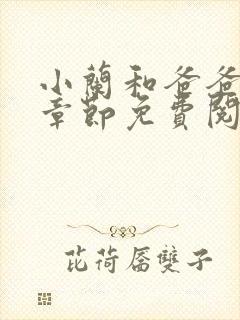 小蘭和爸爸
章節免費閱
芘荷屠雙子